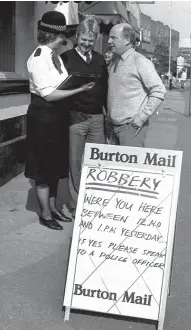 Burton Mail
ROBBERY
WERE YOU HERE
BETWEEN 12.30
AND 1.PM YESTERDAY..
IF YES PLEASE SPEAK
TO A POLICE OFFICER
Burton Mail